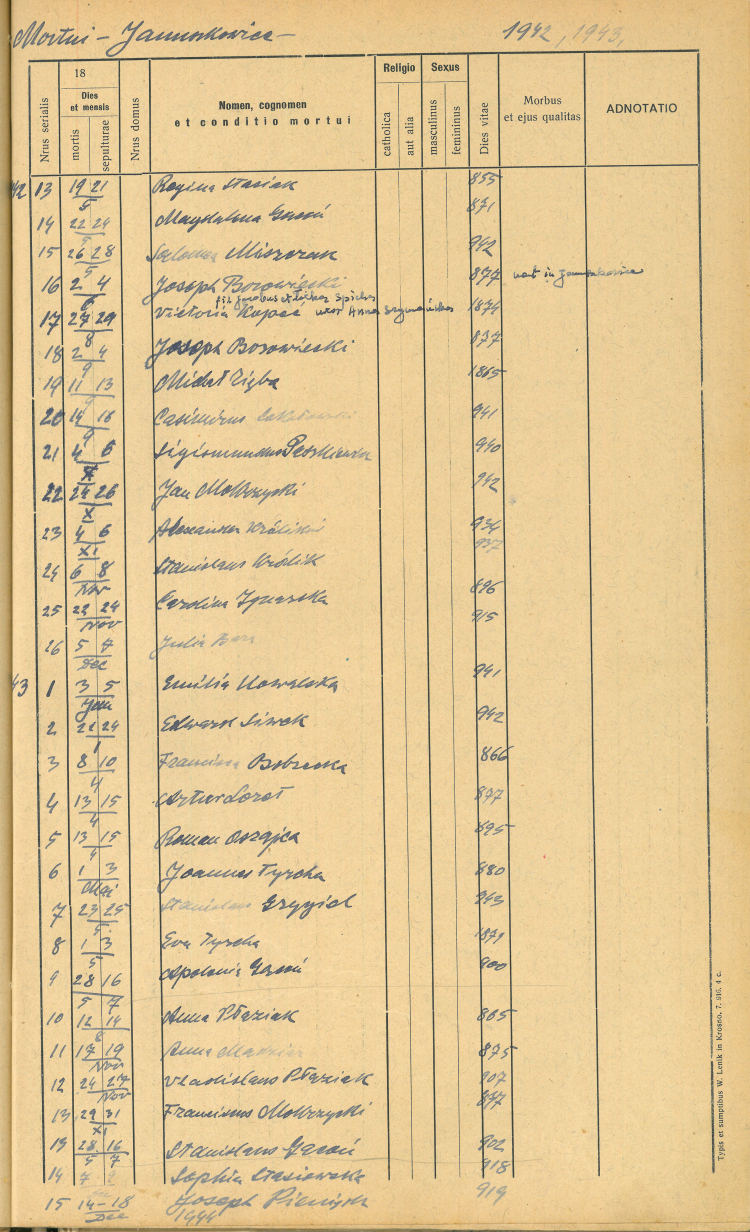 Mortui – Januszkowice – 1942, 1943,
Nrus serialis
18
Dies et mensis
mortis
sepulturae
Nrus domus
Nomen, cognomen
et conditio mortui
Religio
catholica
aut alia
Sexus
masculinus
femininus
Dies vitae
Morbus
et ejus qualitas
ADNOTATIO
42 13 19 21 / 5 Regina Stasiak 855
14 22 24 / 5 Magdalena 871
15 26 28 / 5 Salomea Miszczak 942
16 2 4 / 6 Joseph Borowiecki 877 nat in Januszkowice
fil Jacobus et
17 27 29 / 8 Victoria Kopec uxor Anna Szymańska 1874
18 2 4 / 9 Joseph Borowiecki 877
19 11 13 / 9 Michał Zięba 1865
20 14 16 / 9 Casimirus 941
21 4 6 / X Sigismundus Petskiewicz 940
22 24 26 / X Jan Mokrzycki 942
23 4 6 / XI Alexander 934
937
24 6 8 / Nov Stanislaus Królik
25 22 24 / Nov Carolina 896
915
26 5 7 / Dec Julia
43 1 3 5 / Jan Emilia Kowalska 941
2 22 24 / 1 Edward Siwek 942
3 8 10 / 4 Francisca 866
4 13 15 / 4 Artur 877
5 13 15 / 4 Roman Oszajca 895
6 1 3 / Mai Joannes Tyrcha 880
7 23 25 / 5 Stanislaus Grygiel 943
8 1 3 / 5 Eva Tyrcha 1871
9 28 16 / 5 7 Apolonia 900
10 12 14 / 8 Anna Ptaziak 865
11 17 19 / Nov Anna 875
12 24 27 / Nov Vladislaus Ptaziak 907
13 29 31 / XI Franciscus Mokrzycki 877
13 28 16 / 5 7 Stanislaus 902
14 7 Sophia Stasiowska 918
15 14–18 / Dec Joseph 919
1944
Typis et sumptibus W. Lenik in Krosno. 7. 916. 4 c.